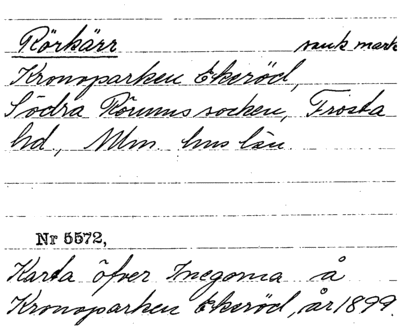 Rörkärr sank mark
Kronoparken Ekeröd,
Södra Rörums socken, Frosta
hd, Mlm hus län
Nr 5572,
Karta öfver Inegorna å
Kronoparken Ekeröd, år 1899.